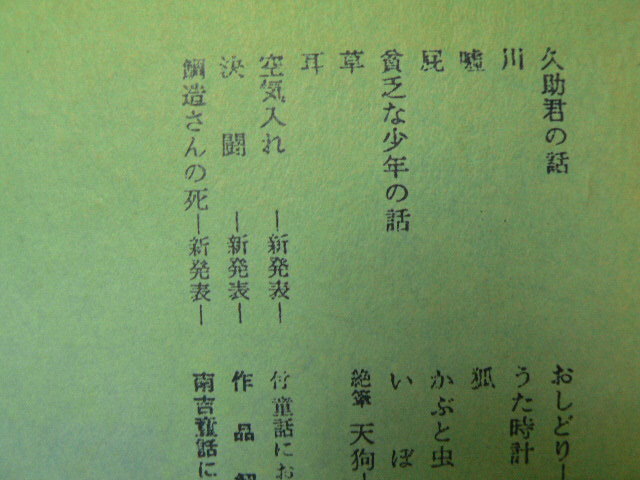 久助君の話
川
嘘
屁
貧乏な少年の話
草
耳
空気入れ ―新発表―
決闘 ―新発表―
鋼造さんの死―新発表―
おしどり―
うた時計
狐
かぶと虫
いぼ
絶筆 天狗―
付 童話にお
作品解
南吉童話に